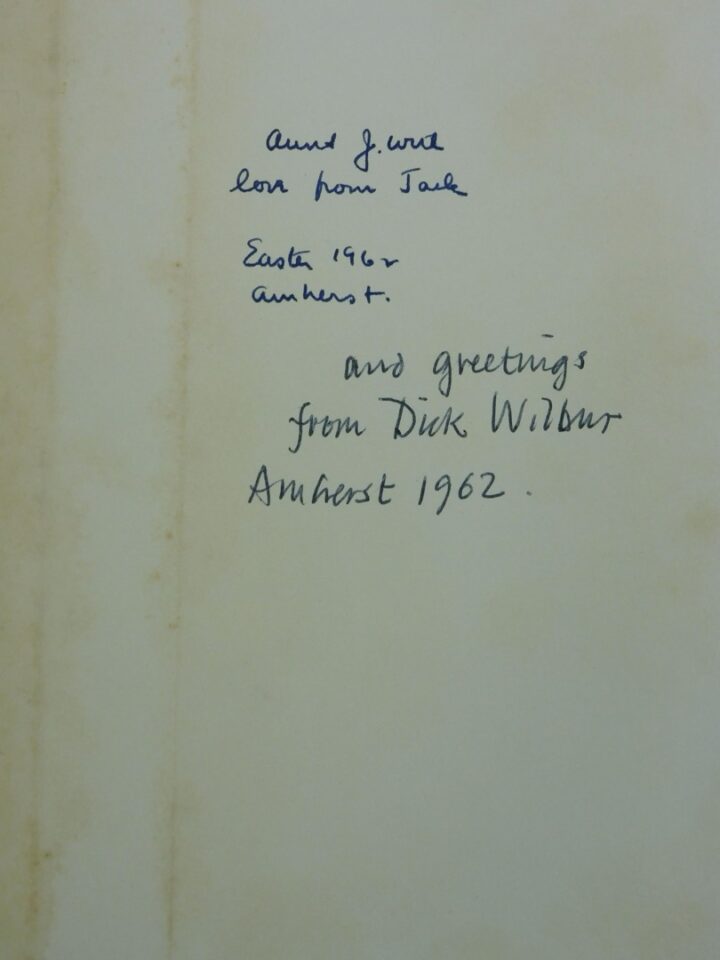 Aunt J. with
love from Jack
Easter 1962
Amherst.
and greetings
from Dick Wilbur
Amherst 1962.